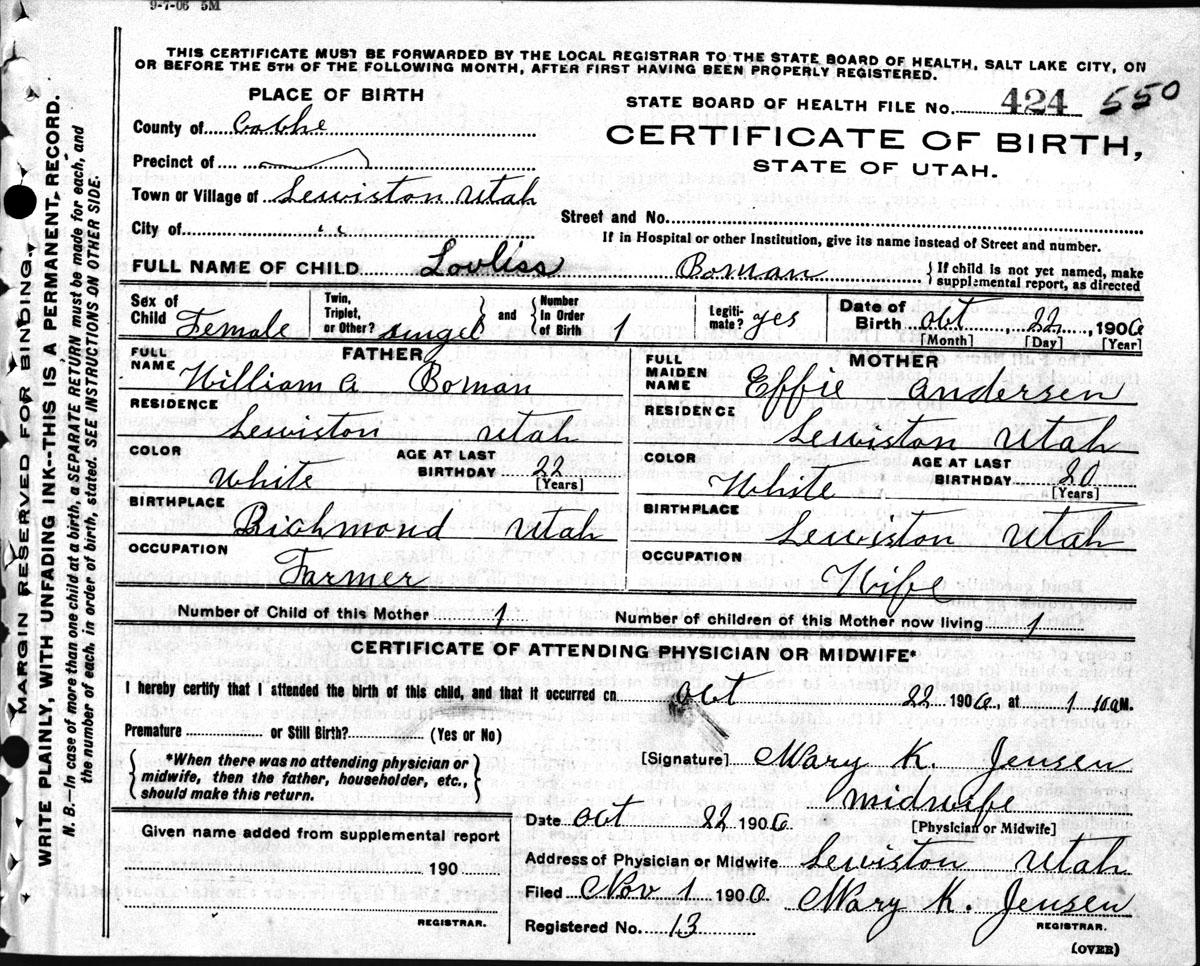 9-7-06 5M
THIS CERTIFICATE MUST BE FORWARDED BY THE LOCAL REGISTRAR TO THE STATE BOARD OF HEALTH, SALT LAKE CITY, ON
OR BEFORE THE 5TH OF THE FOLLOWING MONTH, AFTER FIRST HAVING BEEN PROPERLY REGISTERED.
PLACE OF BIRTH
STATE BOARD OF HEALTH FILE No. 424 550
County of Cache
CERTIFICATE OF BIRTH,
STATE OF UTAH.
Precinct of
Town or Village of Lewiston Utah
Street and No.
City of "
If in Hospital or other Institution, give its name instead of Street and number.
FULL NAME OF CHILD Lovliss Boman { If child is not yet named, make
supplemental report, as directed
Sex of Child Female
Twin, Triplet, or Other? singel } and { Number In Order of Birth 1
Legiti- mate? yes
Date of Birth Oct, 22, 1906
[Month] [Day] [Year]
FATHER
FULL NAME William A Boman
RESIDENCE
Lewiston Utah
COLOR White AGE AT LAST BIRTHDAY 22
[Years]
BIRTHPLACE
Richmond Utah
OCCUPATION
Farmer
MOTHER
FULL MAIDEN NAME Effie Andersen
RESIDENCE
Lewiston Utah
COLOR White AGE AT LAST BIRTHDAY 20
[Years]
BIRTHPLACE
Lewiston Utah
OCCUPATION
Wife
Number of Child of this Mother 1 Number of children of this Mother now living 1
CERTIFICATE OF ATTENDING PHYSICIAN OR MIDWIFE*
I hereby certify that I attended the birth of this child, and that it occurred on Oct 22 1906, at 1 10 A M.
Premature or Still Birth? (Yes or No)
{ *When there was no attending physician or
midwife, then the father, householder, etc.,
should make this return. }
[Signature] Mary K. Jensen
Midwife
[Physician or Midwife]
Date Oct 22 1906
Given name added from supplemental report
190
REGISTRAR.
Address of Physician or Midwife Lewiston Utah
Filed Nov 1 1906 Mary K. Jensen
REGISTRAR.
Registered No. 13
(OVER)
MARGIN RESERVED FOR BINDING.
WRITE PLAINLY, WITH UNFADING INK--THIS IS A PERMANENT RECORD.
N. B.—In case of more than one child at a birth, a SEPARATE RETURN must be made for each, and
the number of each, in order of birth, stated. SEE INSTRUCTIONS ON OTHER SIDE.